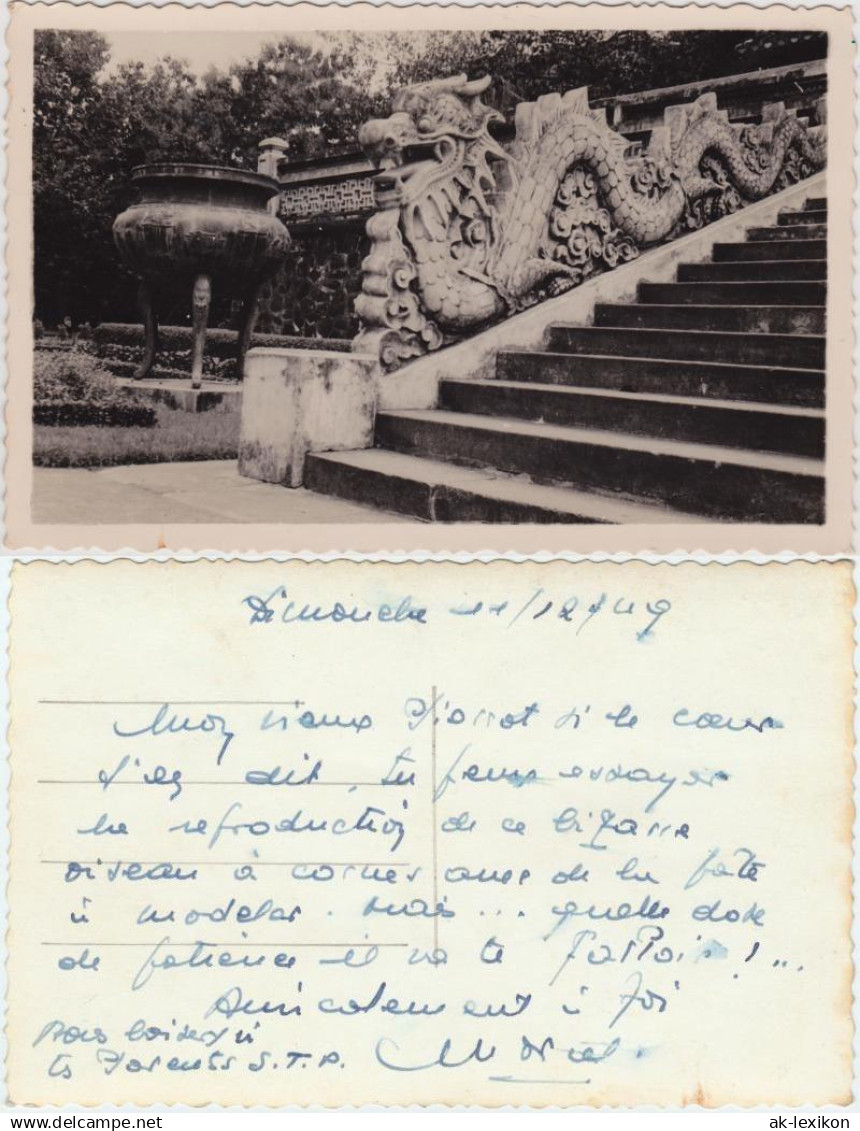 Dimanche 11/12/49
Mon vieux Pierrot si le cœur
t'en dit, tu peux essayer
la reproduction de ce bizarre
oiseau à cornes avec de la pâte
à modeler. Mais... quelle dose
de patience il va te falloir !...
Amicalement à toi
Gros baisers à
ts parents S.T.P.
ak-lexikon